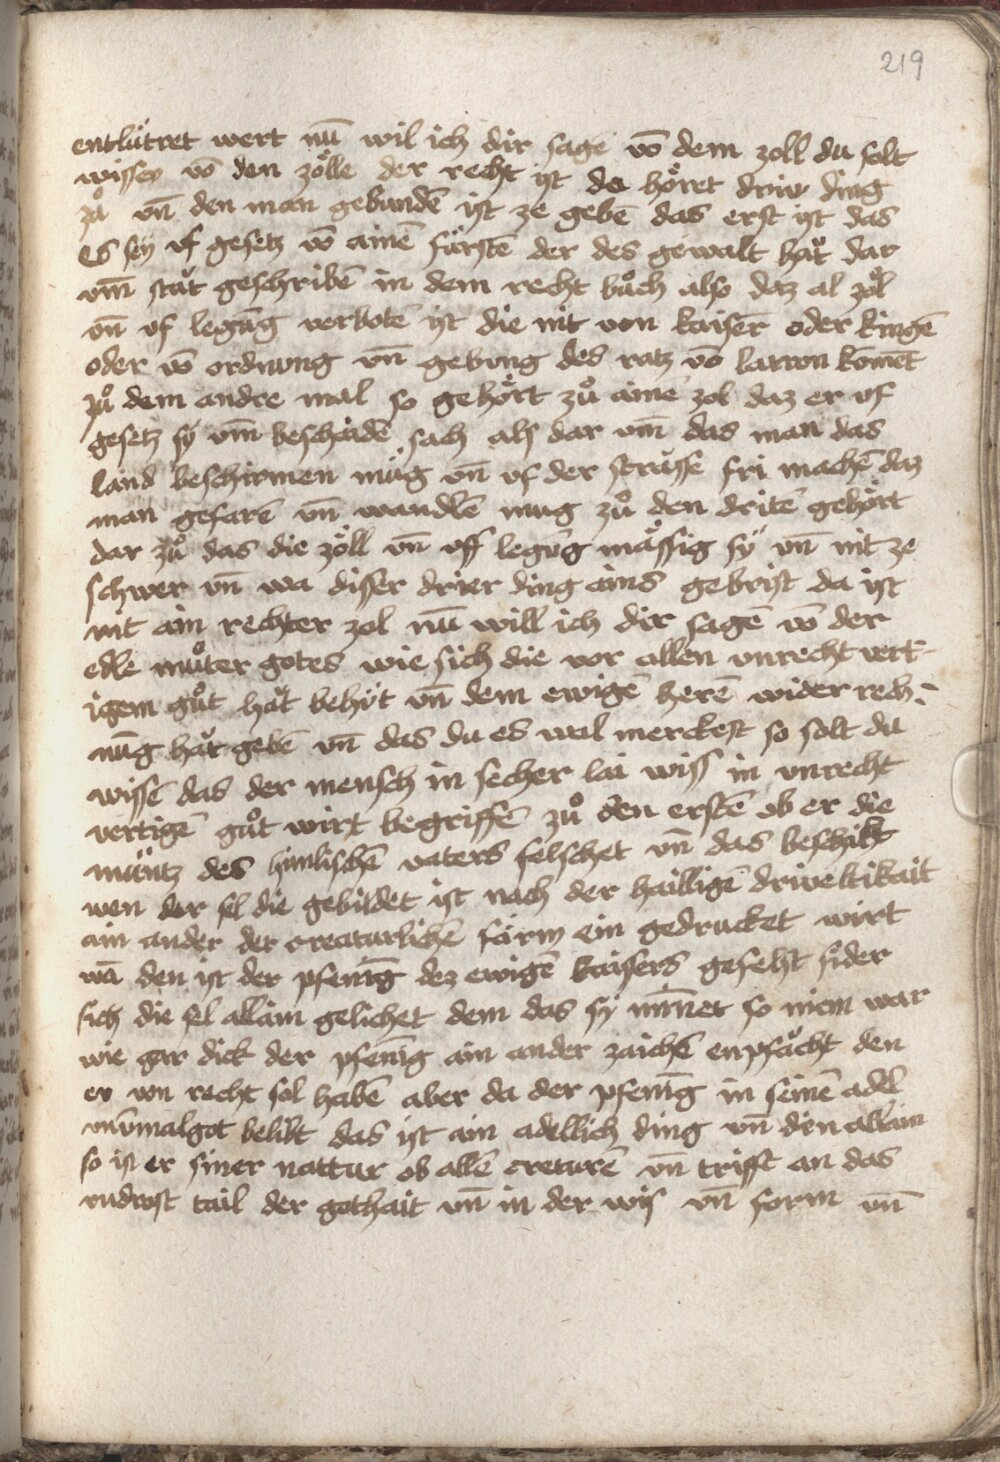 219
entlútret wert nū wil ich dir sagē vō dem zoll du solt
wissen vō den zölle der recht ist da höret driu ding
zů vn̄ den man gebundē ist ze gebē das erst ist das
Es sey vf gesetz vō ainē fürstē der des gewalt hăt dar
vm̄ stăt geschribē in dem recht bůch also daz al zöl
vn̄ vf legūg verbotē ist die nit von kaiser oder kingē
oder vō ordnung vn̄ gebung des ratz vō latron komēt
zů dem andrē mal so gehört zů ainē zol daz er vf
gesetz sy vm̄ beschaidē sach als dar vm̄ das man das
land beschirmen müg vn̄ vf der străsse fri machē daz
man gefarē vn̄ wandlē mug zů den dritē gehört
dar zů das die zöll vn̄ vff legūg mässig sy vn̄ nit ze
schwer vn̄ wa disser drier ding ains gebrist da ist
nit ain rechter zol nū will ich dir sagē vō der
edle můter gotes wie sich die vor allen vnrecht vert-
igem gůt hăt behüt vn̄ dem ewigē herē wider rech-
nūg hăt gebē vn̄ das du es wal merckest so solt du
wissē das der mensch in secher lai wiss in vnrecht
vertigē gůt wirt begriffē zů den erstē ob er die
müntz des himlischē vaters felschet vn̄ das beschiht
wen der sel die gebildet ist nach der hailligē driueltikait
ain ander der creaturlichē form ein gedrucket wirt
wā den ist der pfenīg dez ewigē kaisers gefelst sider
sich die sel allain gelichet dem das sy miñet so niem war
wie gar dick der pfenīg ain ander zaichē enpfăcht den
er von recht sol habē aber da der pfenīg in seinē adel
vnv̄malgot belibt das ist ain adellich ding vn̄ den allain
so ist er siner nattur ob allē creturē vn̄ trifft an das
vndrost tail der gothait vn̄ in der wis vn form vn̄